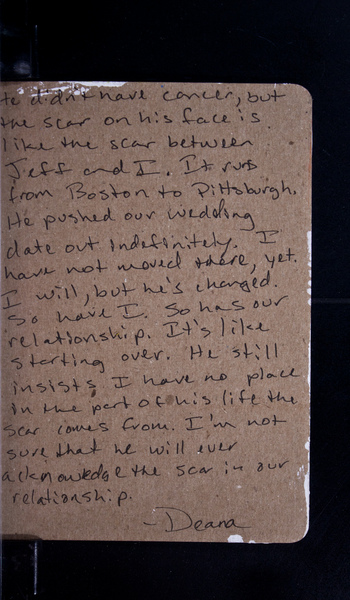 He didn't have cancer, but
the scar on his face is
like the scar between
Jeff and I. It runs
from Boston to Pittsburgh.
He pushed our wedding
date out indefinitely. I
have not moved there, yet.
I will, but he's changed.
So have I. So has our
relationship. It's like
starting over. He still
insists I have no place
in the part of his life the
scar comes from. I'm not
sure that he will ever
acknowledge the scar in our
relationship.
-Deana